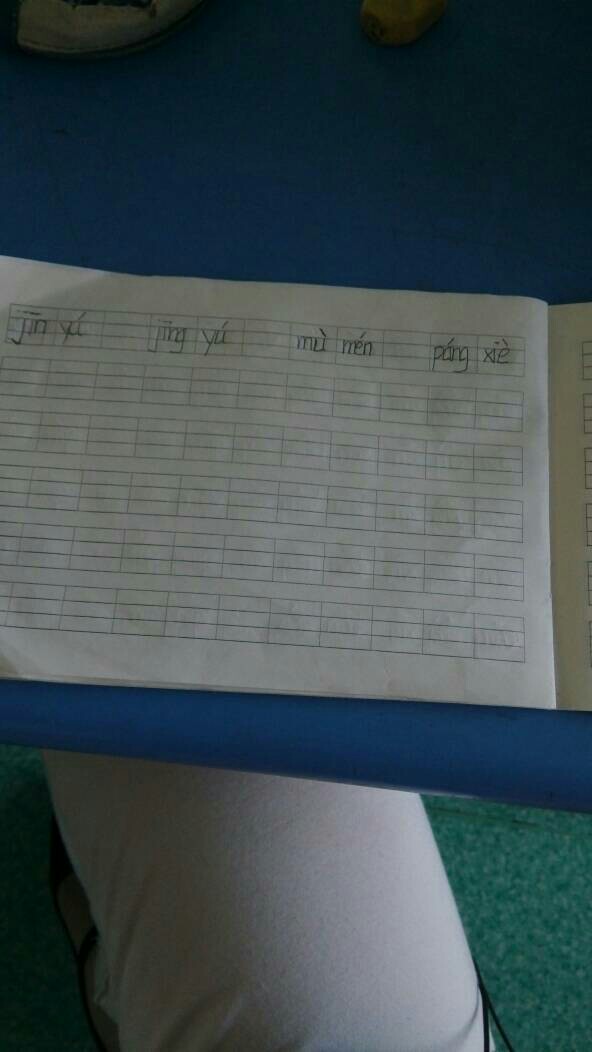 jīn yú jīng yú mù mén páng xiè